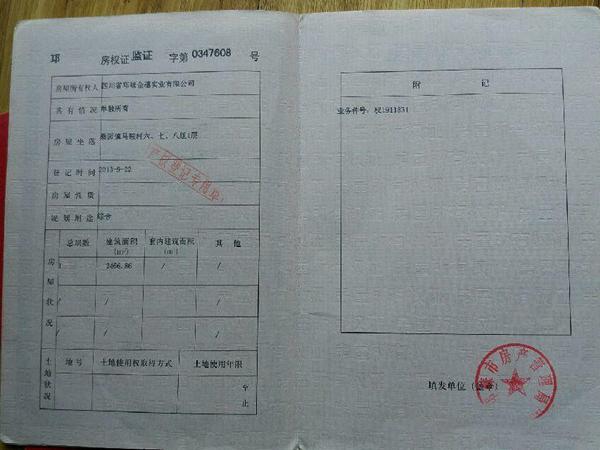 邛 房权证 监证 字第 0347608 号
房屋所有权人 四川省邛崃金禧实业有限公司
共有情况 单独所有
房屋坐落 桑园镇马鞍村六、七、八组1层
登记时间 2013-9-22
房屋性质
规划用途 综合
房屋状况
总层数 建筑面积(m²) 套内建筑面积(m²) 其他
1 2466.86 / /
/ / / /
/ / / /
土地状况
地号 土地使用权取得方式 土地使用年限
至
止
附记
业务件号:权1911831
填发单位
市房产管理局